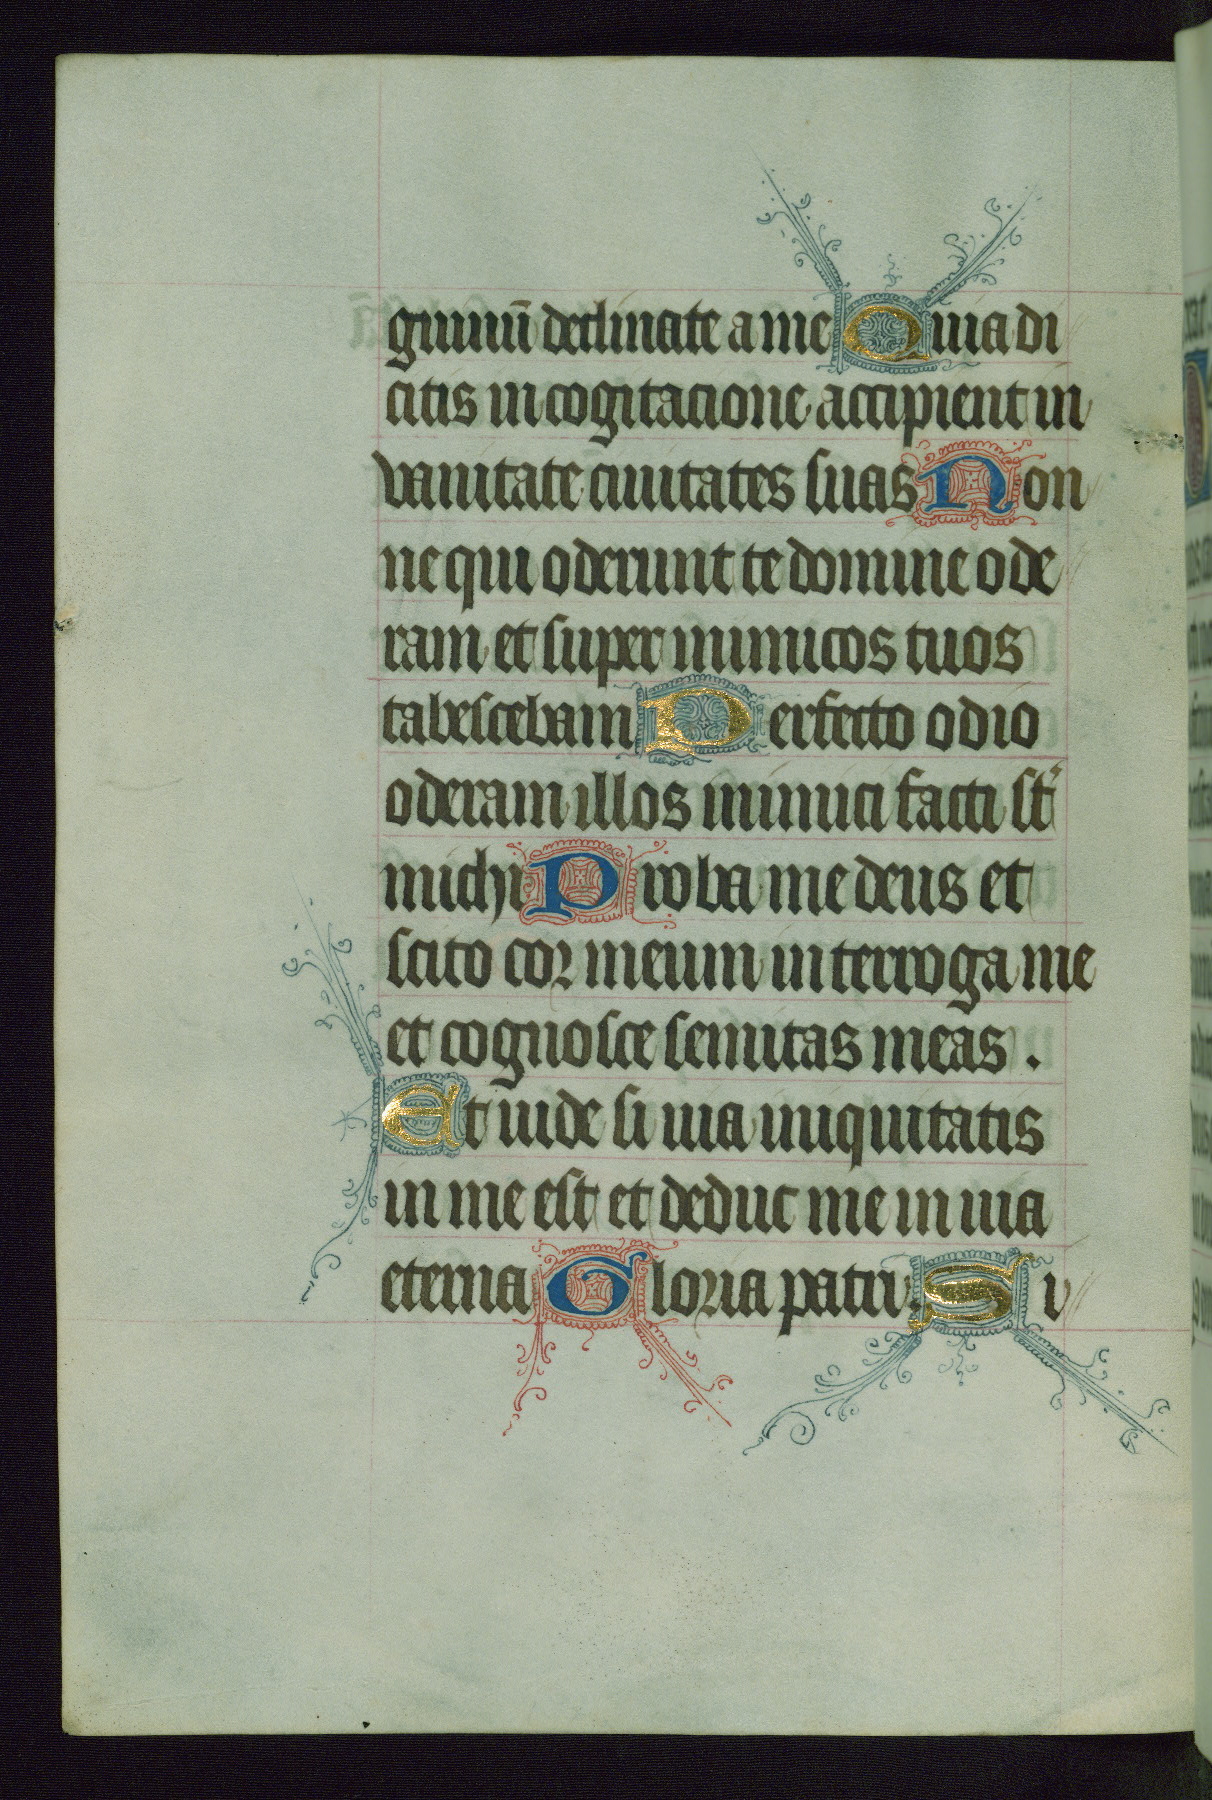 guinū declinate a me Quia di
citis in cogitacione accipient in
vanitate ciuitates suas Non
ne qui oderunt te domine ode
ram et super inimicos tuos
tabescebam Perfecto odio
oderam illos inimici facti st̄
michi Proba me deus et
scito cor meum interroga me
et cognosce semitas meas .
Et uide si uia iniquitatis
in me est et deduc me in uia
eterna Gloria patri Si